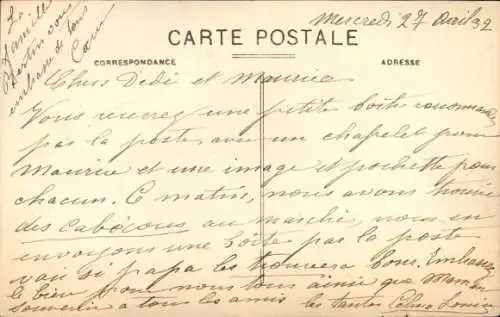 La
famille
Bertin vous
embrasse de tous
Cœur
Mercredi 27 Avril 32
CARTE POSTALE
CORRESPONDANCE
ADRESSE
Chers Dédé et Maurice
Vous recevrez une petite boîte
par la poste avec un chapelet pour
Maurice et une image et pochette pour
chacun. Ce matin, nous avons trouvé
des cabécous au marché, nous en
envoyons une boîte pas la poste
voir si papa les trouvera bons. Embrassez
le bien pour nous tous ainsi que Maman
à tous les amis les tantes Louise